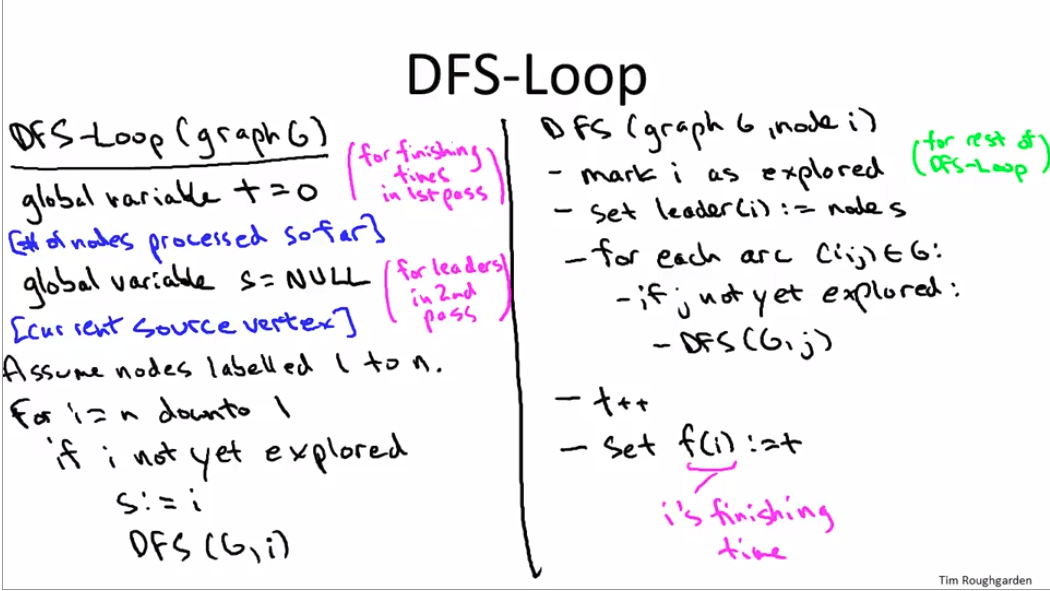 DFS-Loop
DFS-Loop (graph G)
(for finishing
times
in 1st pass)
global variable t = 0
[# of nodes processed so far]
global variable s = NULL
(for leaders
in 2nd
pass)
[current source vertex]
Assume nodes labelled 1 to n.
For i = n downto 1
if i not yet explored
s := i
DFS (G, i)
DFS (graph G, node i)
- mark i as explored
(for rest of
DFS-Loop)
- set leader(i) := node s
- for each arc (i,j) ∈ G:
- if j not yet explored:
- DFS(G,j)
- t++
- set f(i) := t
i's finishing
time
Tim Roughgarden